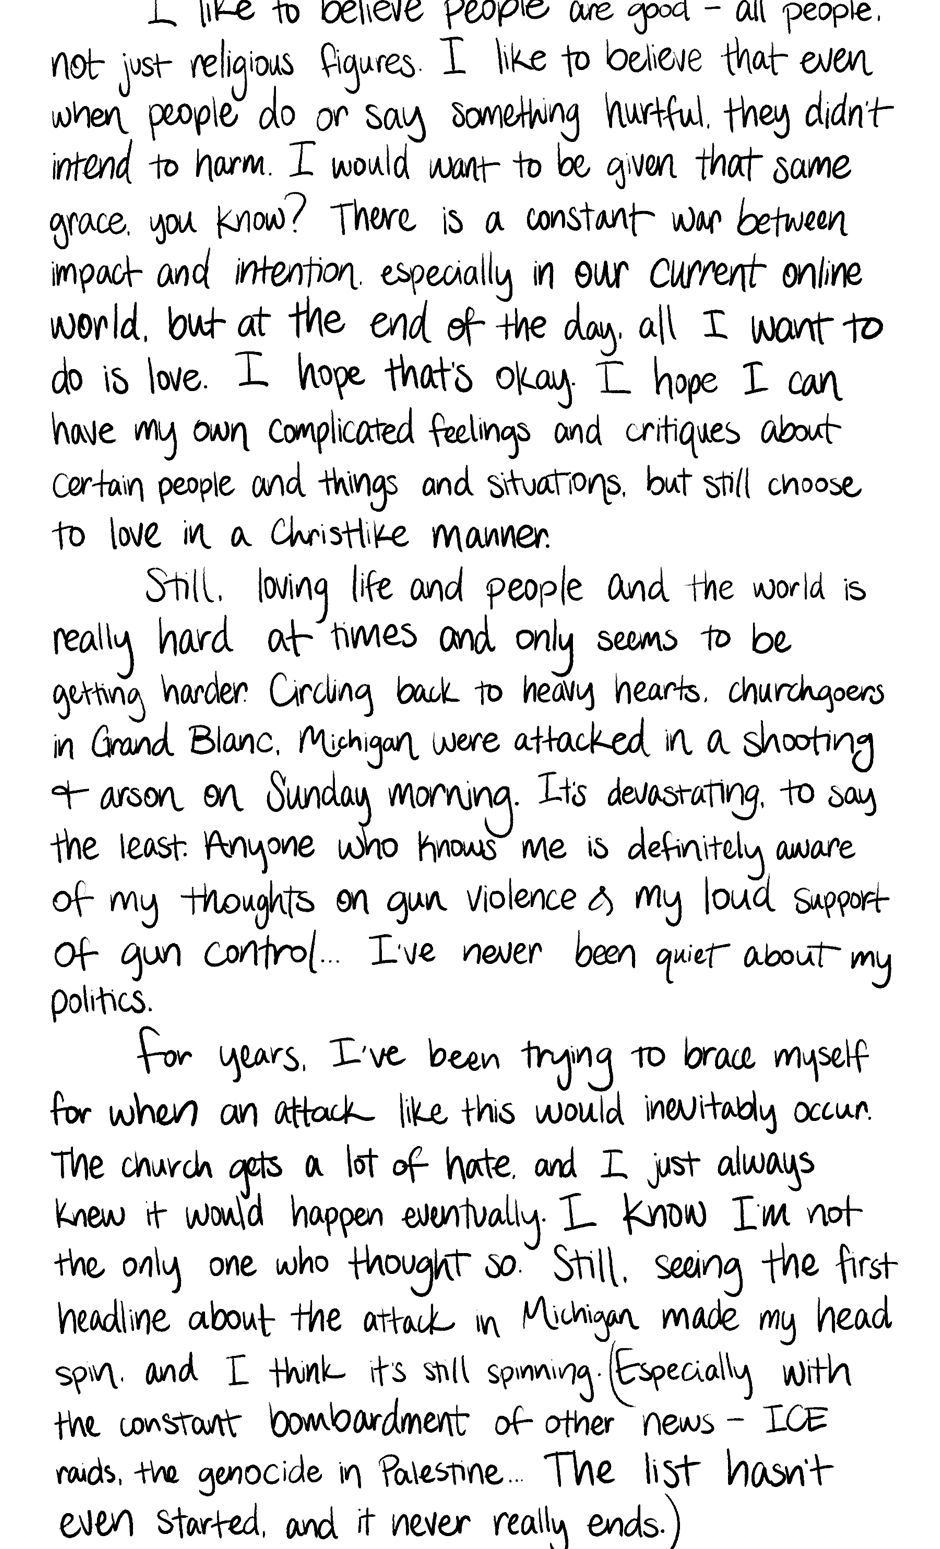 I like to believe people are good - all people,
not just religious figures. I like to believe that even
when people do or say something hurtful, they didn't
intend to harm. I would want to be given that same
grace, you know? There is a constant war between
impact and intention, especially in our current online
world, but at the end of the day, all I want to
do is love. I hope that's okay. I hope I can
have my own complicated feelings and critiques about
certain people and things and situations, but still choose
to love in a Christlike manner.
Still, loving life and people and the world is
really hard at times and only seems to be
getting harder. Circling back to heavy hearts, churchgoers
in Grand Blanc, Michigan were attacked in a shooting
+ arson on Sunday morning. It's devastating, to say
the least. Anyone who knows me is definitely aware
of my thoughts on gun violence & my loud support
of gun control... I've never been quiet about my
politics.
For years, I've been trying to brace myself
for when an attack like this would inevitably occur.
The church gets a lot of hate, and I just always
knew it would happen eventually. I know I'm not
the only one who thought so. Still, seeing the first
headline about the attack in Michigan made my head
spin, and I think it's still spinning. (Especially with
the constant bombardment of other news - ICE
raids, the genocide in Palestine... The list hasn't
even started, and it never really ends.)